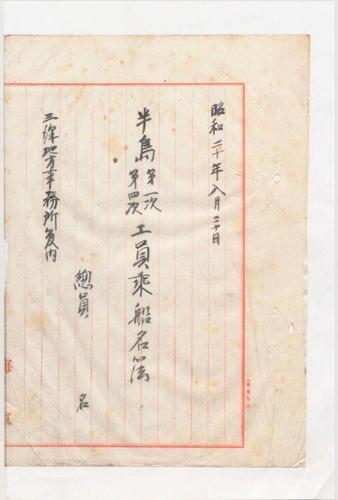 昭和二十年八月二十日
半島第一次第四次工員乗船名簿
三沢地方事務所管内
總員　　名
海